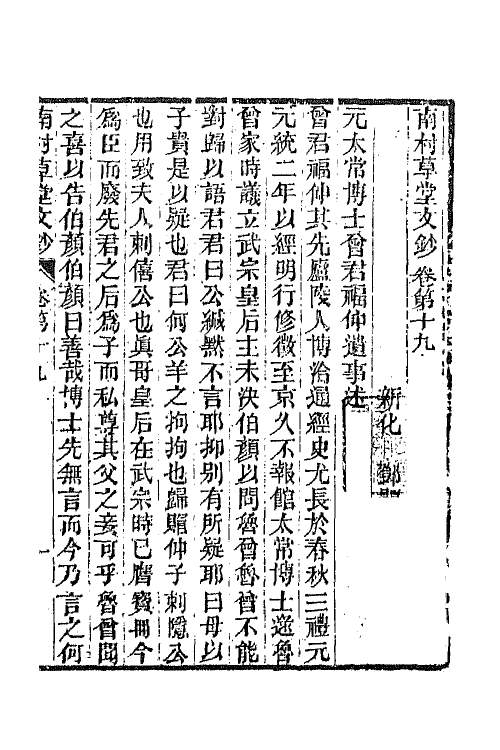 南村草堂文鈔卷第十九
新化
元太常博士曾君福仲遺事述
曾君福仲其先廬陵人博洽通經史尤長於春秋三禮元
元統二年以經明行修徵至京久不報館太常博士逯魯
曾家時議立武宗皇后主未決伯顏以問魯曾魯曾不能
對歸以語君君曰公緘默不言耶抑別有所疑耶曰母以
子貴是以疑也君曰何公羊之拘拘也歸賵仲子刺隱公
也用致夫人刺僖公也眞哥皇后在武宗時已膺寶冊今
爲臣而廢先君之后爲子而私尊其父之妾可乎魯曾聞
之喜以告伯顏伯顏曰善哉博士先無言而今乃言之何
南村草堂文鈔 卷第十九 一